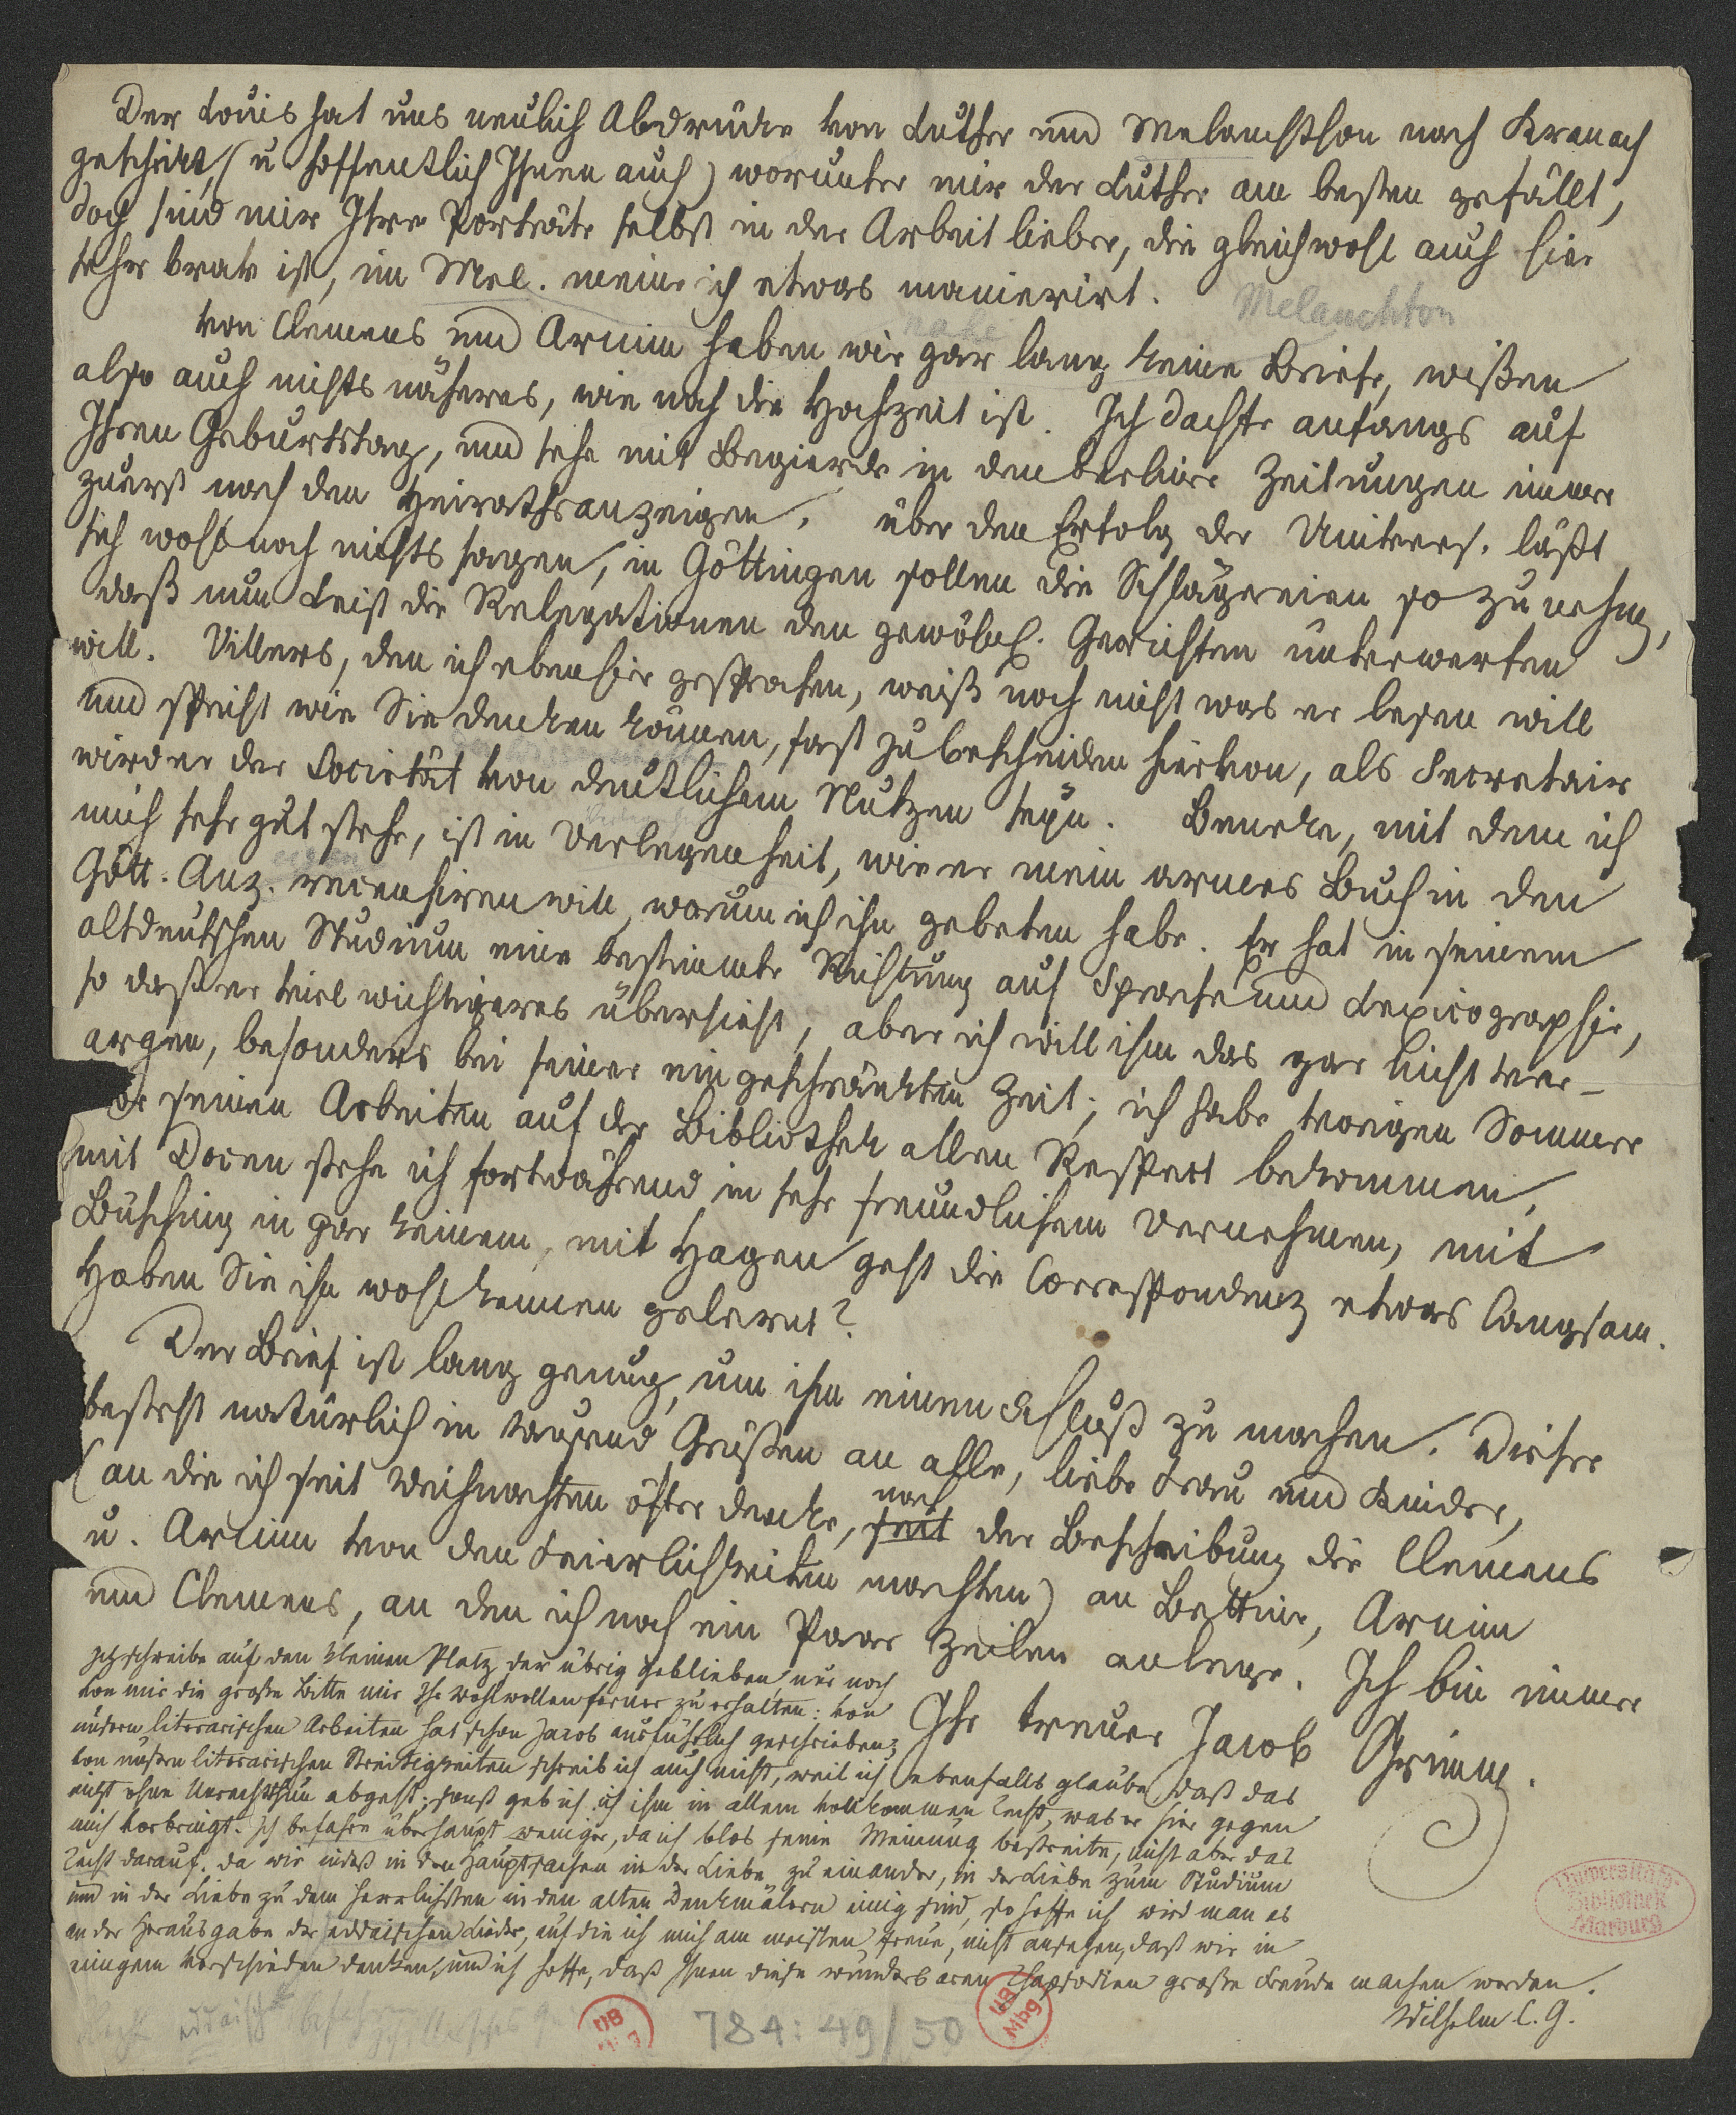 Der Louis hat uns neulich Abdrücke von Luther und Melanchthon nach Kranach
geschickt, (u hoffentlich Ihnen auch) worunter mir der Luther am besten gefällt,
doch sind mir Ihre Porträte selbst in der Arbeit lieber, die gleichwohl auch hier
sehr brav ist, im Mel. meine ich etwas manierirt.
Melanchton
nahe
von Clemens und Arnim haben wir gar lang keine Briefe, wißen
also auch nichts näheres, wie nah die Hochzeit ist. Ich dachte anfangs auf
Ihren Geburtstag, und sehe mit Begierde in den berliner Zeitungen immer
zuerst nach den Heirathsanzeigen. über den Erfolg der Univers. läßt
sich wohl noch nichts sagen, in Göttingen sollen die Schlägereien so zunehm,
daß nun Leist die Relegationen den gewöhnl. Gerichten unterwerfen
will. Villers, den ich eben hier gesprochen, weiß noch nicht was er lesen will
und spricht wie Sie denken können, fast zu bescheiden hiervon, als Secretair
wird er der Societät von deutlichem Nutzen seyn. Beneke, mit dem ich
mich sehr gut stehe, ist in Verlegenheit, wie er mein armes Buch in den
Gött. Anz. recensiren will, worum ich ihn gebeten habe. Er hat in seinem
altdeutschen Studium eine bestimmte Richtung auf Sprache und Lexicographie,
so daß er viel wichtigeres übersieht, aber ich will ihm das gar nicht ver-
argen, besonders bei seiner eingeschränkten Zeit; ich habe vorigen Sommer
vor seinen Arbeiten auf der Bibliothek allen Respect bekommen,
mit Docen stehe ich fortwährend in sehr freundlichem Vernehmen, mit
Büsching in gar keinem, mit Hagen geht die Correspondenz etwas langsam.
Haben Sie ihn wohl kennen gelernt?
Der Brief ist lang genug, um ihm einen Schluß zu machen. Dieser
besteht natürlich in tausend Grüßen an alle, liebe Frau und Kinder,
(an die ich seit Weihnachten öfter denke, seit nach der Beschreibung die Clemens
u. Arnim von den Feierlichkeiten machten) an Bettine, Arnim
und Clemens, an den ich noch ein Paar Zeilen anlege. Ich bin immer
Ihr treuer Jacob Grimm.
Ich schreibe auf den kleinen Platz der übrig geblieben, nur noch
von mir die große Bitte mir Ihr Wohlwollen ferner zu erhalten: von
unsern literarischen Arbeiten hat schon Jacob ausführlich geschrieben,
von unsern literarischen Streitigkeiten schreib ich auch nicht, weil ich ebenfalls glaube daß das
nicht ohne Unrechtthun abgeht; sonst geb ich ihm in allem vollkommen Recht, was er hier gegen
mich vorbringt. Ich befahre überhaupt weniger, da ich blos seine Meinung bestreite, nicht aber das
Recht darauf. Da wir indeß in den Hauptsachen in der Liebe zu einander, in der Liebe zum Studium
und in der Liebe zu dem herrlichsten in den alten Denkmälern einig sind, so hoffe ich wird man es
an der Herausgabe der eddaischen Lieder, auf die ich mich am meisten freue, nicht ansehen, daß wir in
einigem verschieden denken, und ich hoffe, daß Ihnen diese wunderbaren Rhapsodien große Freude machen werden.
Wilhelm C. G.
Universitäts-
Bibliothek
Marburg
UB
Mbg
784:49/50
UB